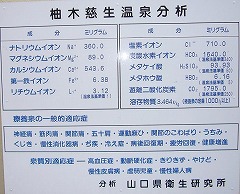 柚木慈生温泉分析
成分 ミリグラム
ナトリウムイオン Na⁺ 360.0
マグネシウムイオン Mg²⁺ 59.0
カルシウムイオン Ca²⁺ 549.6
第一鉄イオン Fe²⁺ 6.38
リチウムイオン Li⁺ 3.12
成分 ミリグラム
塩素イオン Cl⁻ 710.0
炭酸水素イオン 1640.0
メタケイ酸
メタホウ酸 6.16
遊離二酸化炭素 CO₂ 1795.0
溶存物質
療養泉の一般的適応症
神経痛・筋肉痛・関節痛・五十肩・運動麻ひ・関節のこわばり・うちみ・
くじき・慢性消化器病・痔疾・冷え症・病後回復期・疲労回復・健康増進
泉質別適応症―高血圧症・動脈硬化症・きりきず・やけど・
慢性皮膚病・虚弱児童・慢性婦人病
分析 山口県衛生研究所